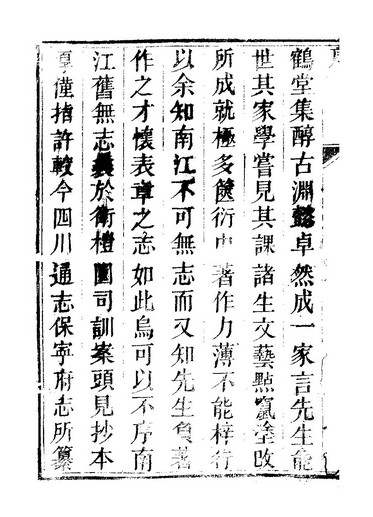 鶴堂集醇古淵懿卓然成一家言先生能
世其家學嘗見其課諸生文藝點竄塗改
所成就極多篋衍中著作力薄不能梓行
以余知南江不可無志而又知先生負著
作之才懷表章之志如此烏可以不序南
江舊無志曩於衛橒園司訓案頭見抄本
厚僅指許較今四川通志保寧府志所纂